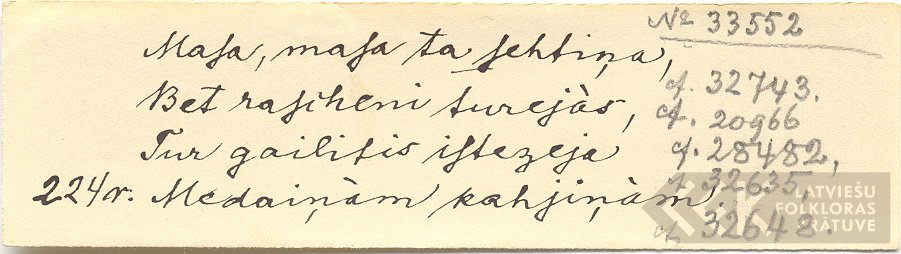 № 33552
Maſa, maſa ta ſehtiņa,
Bet raſcheni turejàs,
Tur gailitis iſtezeja
224r. Medaiņàm kahjiņàm.
cf. 32743.
cf. 20966
cf. 28482,
cf. 32635,
cf. 32648.
LATVIEŠU
FOLKLORAS
KRĀTUVE